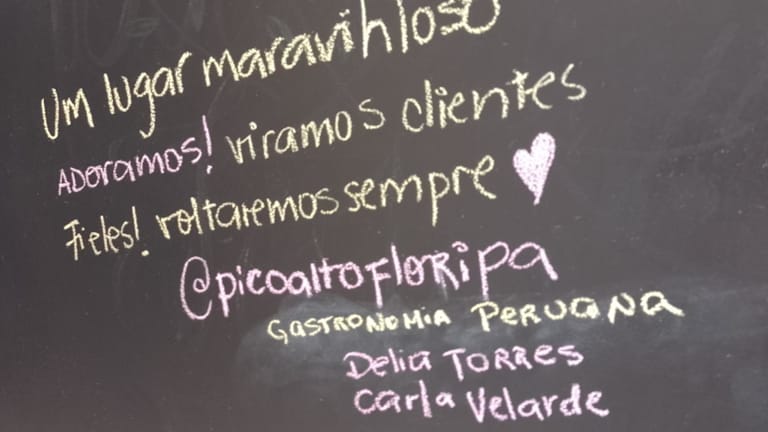 Um lugar maravihloso
Adoramos! viramos clientes
Fieles! voltaremos sempre
@picoaltofloripa
GASTRONOMIA PERUANA
Delia TORRES
Carla Velarde